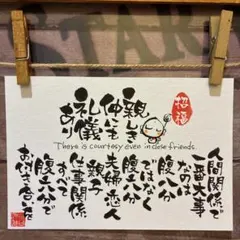 START
招福
親しき
仲にも
礼儀
あり
There is courtesy even in close friends.
人間関係で
一番大事
なのは
腹八分
ではなく
夫婦恋人
親子
仕事関係
すべて